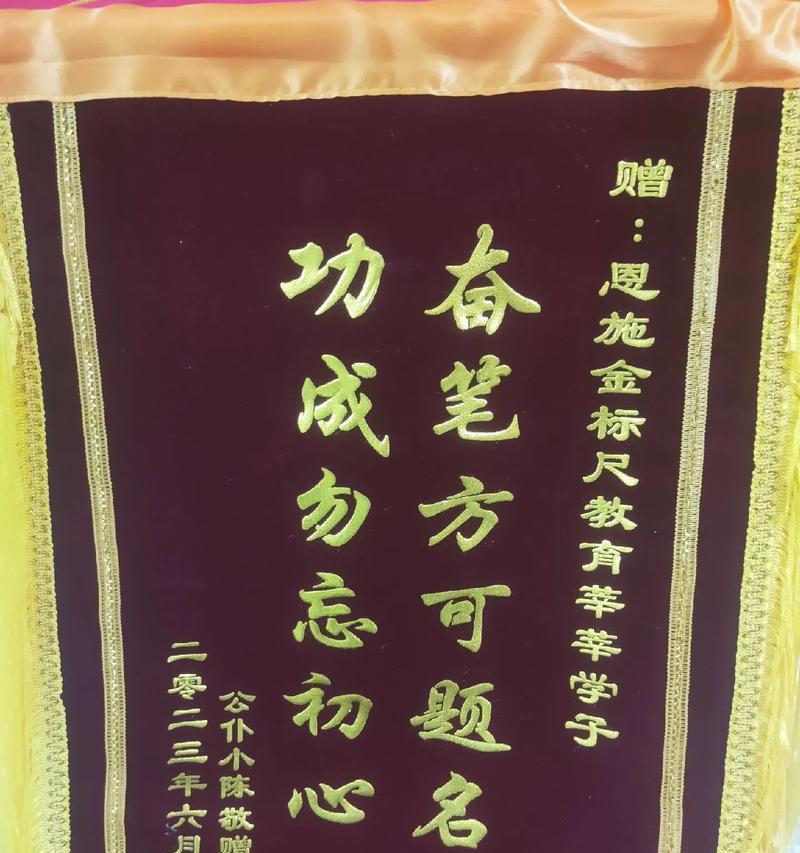 赠：恩施金标尺教育莘莘学子
奋笔方可题名
功成勿忘初心
公仆小陈敬赠
二零二三年六月